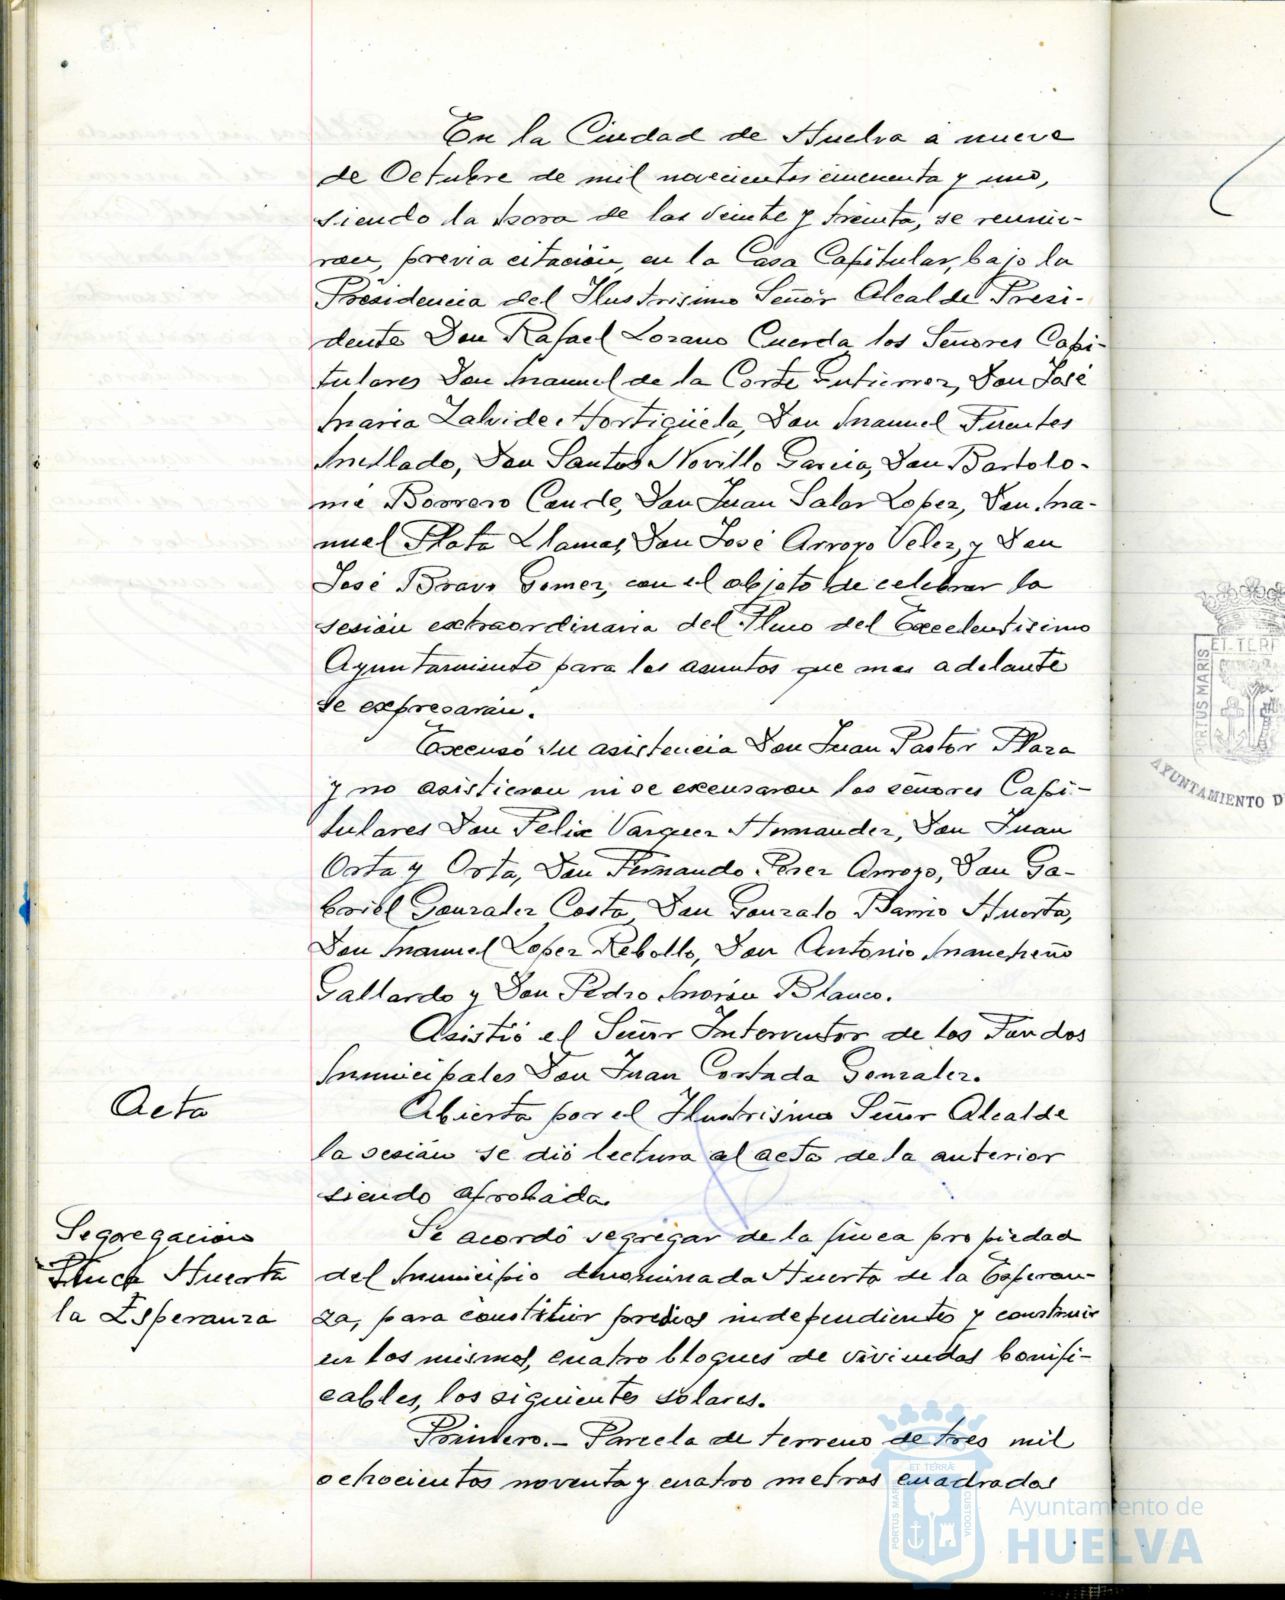 En la Ciudad de Huelva a nueve
de Octubre de mil novecientos cincuenta y uno,
siendo la hora de las veinte y treinta, se reunie-
ron, previa citación, en la Casa Capitular, bajo la
Presidencia del Ilustrisimo Señor Alcalde Presi-
dente Don Rafael Lozano Cuerda los Señores Capi-
tulares Don Manuel de la Corte Gutierrez, Don José
Maria Zalvide Hortigüela, Don Manuel Fuentes
Mellado, Don Santos Novillo Garcia, Don Bartolo-
mé Borrero Conde, Don Juan Salas Lopez, Don Ma-
nuel Plata Llamas, Don José Arroyo Velez, y Don
José Bravo Gomez, con el objeto de celebrar la
sesión extraordinaria del Pleno del Excelentisimo
Ayuntamiento para los asuntos que mas adelante
se expresarán.
Excusó su asistencia Don Juan Pastor Plaza
y no asistieron ni se excusaron los señores Capi-
tulares Don Felix Vazquez Hernandez, Don Juan
Orta y Orta, Don Fernando Perez Arroyo, Don Ga-
briel Gonzalez Costa, Don Gonzalo Barrio Huerta,
Don Manuel Lopez Rebollo, Don Antonio Mancheño
Gallardo y Don Pedro Morón Blanco.
Asistió el Señor Interventor de los Fondos
Municipales Don Juan Cortada Gonzalez.
Acta
Abierta por el Ilustrisimo Señor Alcalde
la sesión se dió lectura al acta de la anterior
siendo aprobada.
Segregación
Finca Huerta
la Esperanza
Se acordó segregar de la finca propiedad
del Municipio denominada Huerta de la Esperan-
za, para constituir predios independientes y construir
en los mismos, cuatro bloques de viviendas bonifi-
cables, los siguientes solares.
Primero.- Parcela de terreno de tres mil
ochocientos noventa y cuatro metros cuadrados
PORTUS MARIS
ET TERR
AYUNTAMIENTO D
PORTUS MARIS
ET TERRÆ
CUSTODIA
Ayuntamiento de
HUELVA